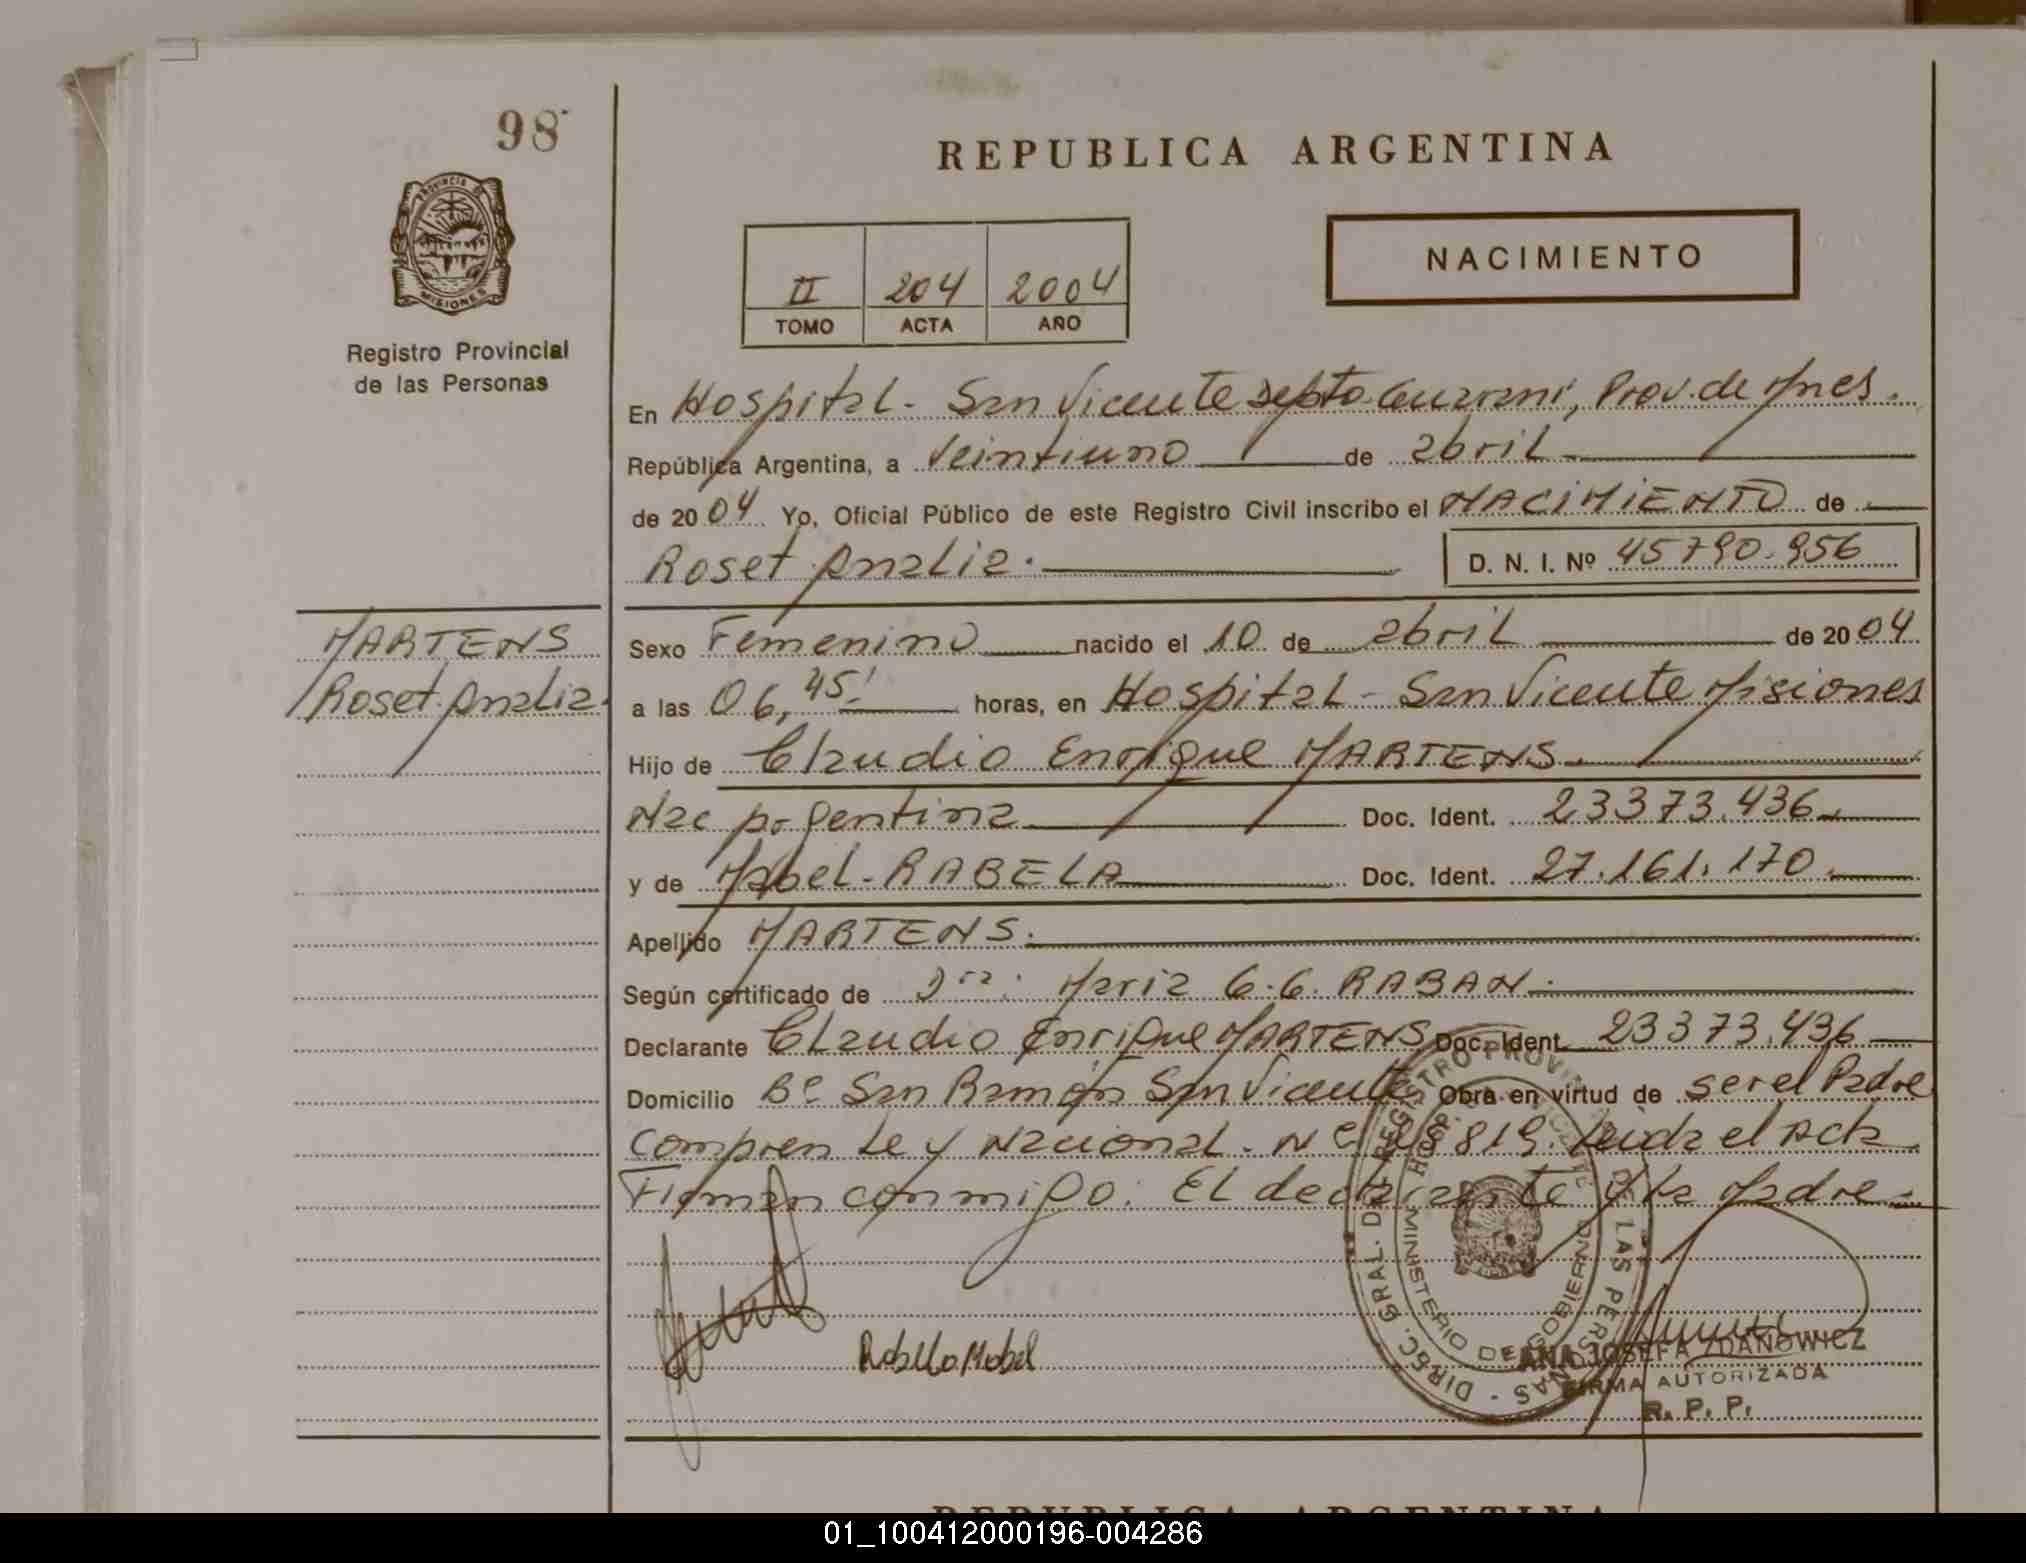 98
REPUBLICA ARGENTINA
PROVINCIA DE
MISIONES
Registro Provincial
de las Personas
II 204 2004
TOMO ACTA AÑO
NACIMIENTO
En Hospital - San Vicente Depto Guarani, Prov. de Mnes.
República Argentina, a Veintiuno de abril
de 2004 Yo, Oficial Público de este Registro Civil inscribo el NACIMIENTO de
Roset Analia. D. N. I. Nº 45790.956
MARTENS
Roset Analia.
Sexo Femenino nacido el 10 de abril de 2004
a las 06,45' horas, en Hospital - San Vicente Misiones
Hijo de Claudio Enrique MARTENS
Nac Argentina Doc. Ident. 23373.436
y de Mabel - RABELA Doc. Ident. 27.161.170.
Apellido MARTENS.
Según certificado de Dra. Maria G.G. RABAN.
Declarante Claudio Enrique MARTENS Doc. Ident. 23373.436
Domicilio Bº San Ramón San Vicente Obra en virtud de ser el Padre
Compren Ley Nacional. Nº 819. Leida el Acta
Firman conmigo. El declarante y la Madre
DIREC. GRAL. DEL REGISTRO PROVINCIAL DE LAS PERSONAS
HOSP. VICENTE
MINISTERIO DE GOBIERNO
Rabella Mabel
ANA JOSEFA ZDANOWICZ
FIRMA AUTORIZADA
R. P. P.
REPUBLICA ARGENTINA
01_100412000196-004286